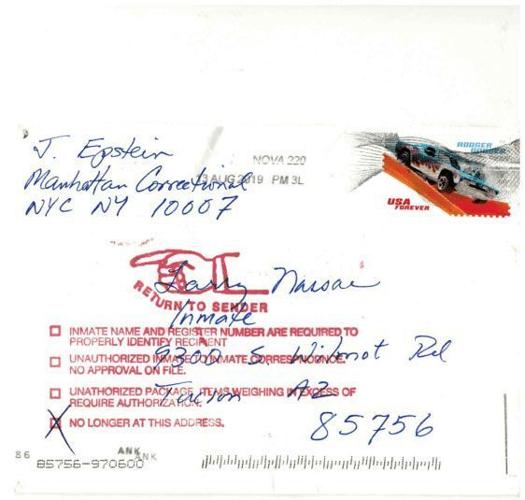 J. Epstein
Manhattan Correctional
NYC NY 10007
NOVA 220
13 AUG 2019 PM 3 L
RODGER DODGER
USA
FOREVER
RETURN TO SENDER
Larry Nassar
Inmate
9300 S. Wilmot Rd
Tucson AZ
85756
INMATE NAME AND REGISTER NUMBER ARE REQUIRED TO
PROPERLY IDENTIFY RECIPIENT
UNAUTHORIZED INMATE TO INMATE CORRESPONDENCE.
NO APPROVAL ON FILE.
UNATHORIZED PACKAGE, ITEMS WEIGHING IN EXCESS OF
REQUIRE AUTHORIZATION.
X NO LONGER AT THIS ADDRESS.
86
ANK
ANK
85756-970600